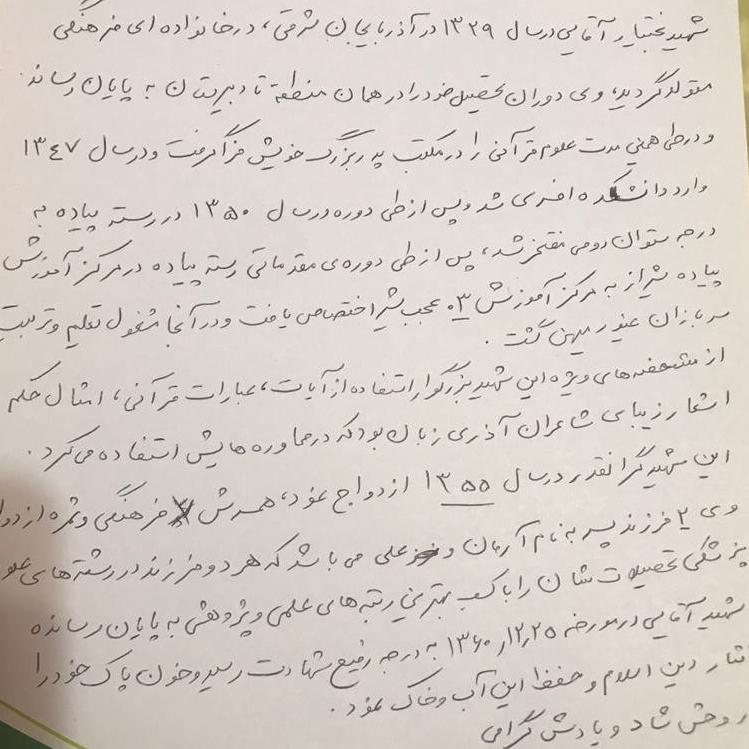 شهید بختیار آقایی در سال ۱۳۲۹ در آذربایجان شرقی، در خانواده ای فرهنگی
متولد گردید، وی دوران تحصیل خود را در همان منطقه تا دبیرستان به پایان رساند.
و در طی همین مدت علوم قرآنی را در مکتب پدربزرگ خویش فرا گرفت و در سال ۱۳۴۷
وارد دانشکده افسری شد و پس از طی دوره در سال ۱۳۵۰ در رسته پیاده به
درجه ستوان دومی مفتخر شد، پس از طی دوره‌ی مقدماتی رسته پیاده در مرکز آموزش
پیاده شیراز به مرکز آموزش ۰۳ عجب شیر اختصاص یافت و در آنجا مشغول تعلیم و تربیت
سربازان غیور میهن گشت.
از مشخصه های ویژه این شهید بزرگوار استفاده از آیات، عبارات قرآنی، امثال حکم
اشعار زیبای شاعران آذری زبان بود که در محاوره هایش استفاده می کرد.
این شهید گرانقدر در سال ۱۳۵۵ ازدواج نمود، همسرش فرهنگی و ثمره ازدوا
وی ۲ فرزند پسر به نام آرمان و علی می باشد که هر دو فرزند در رشته های علو
پزشکی تحصیلات شان را با کسب بهترین رتبه های علمی و پژوهشی به پایان رسانده
شهید آقایی در مورخه ۱۳۶۰٫۱۲٫۲۵ به درجه رفیع شهادت رسید و خون پاک خود را
نثار دین اسلام و حفظ این آب و خاک نمود.
روحش شاد و یادش گرامی